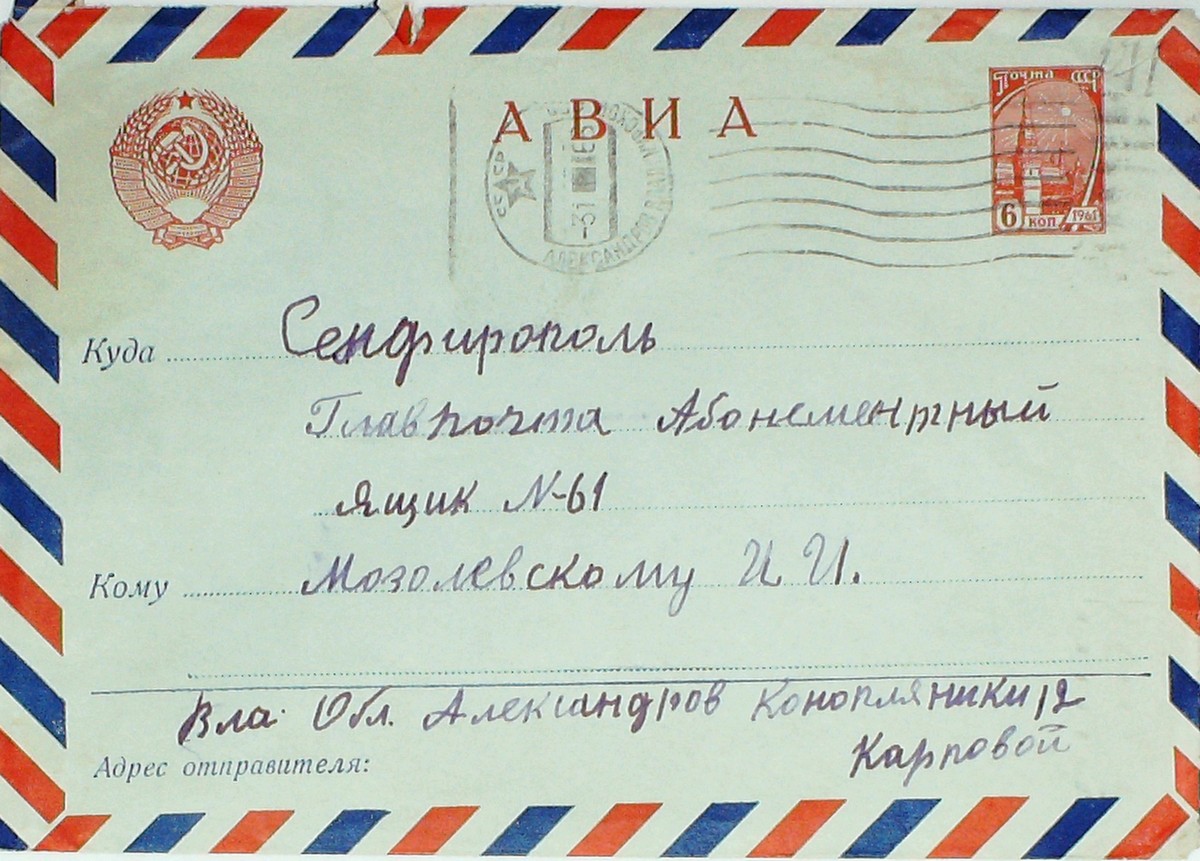 АВИА
Почта СССР
6 коп 1961
СССР АЛЕКСАНДРОВ
31
Куда Сенфирополь
Главпочта Абонементный
ящик N-61
Кому Мозолевскому И И.
Вла. Обл. Александров Конопляники 12
Карповой
Адрес отправителя: